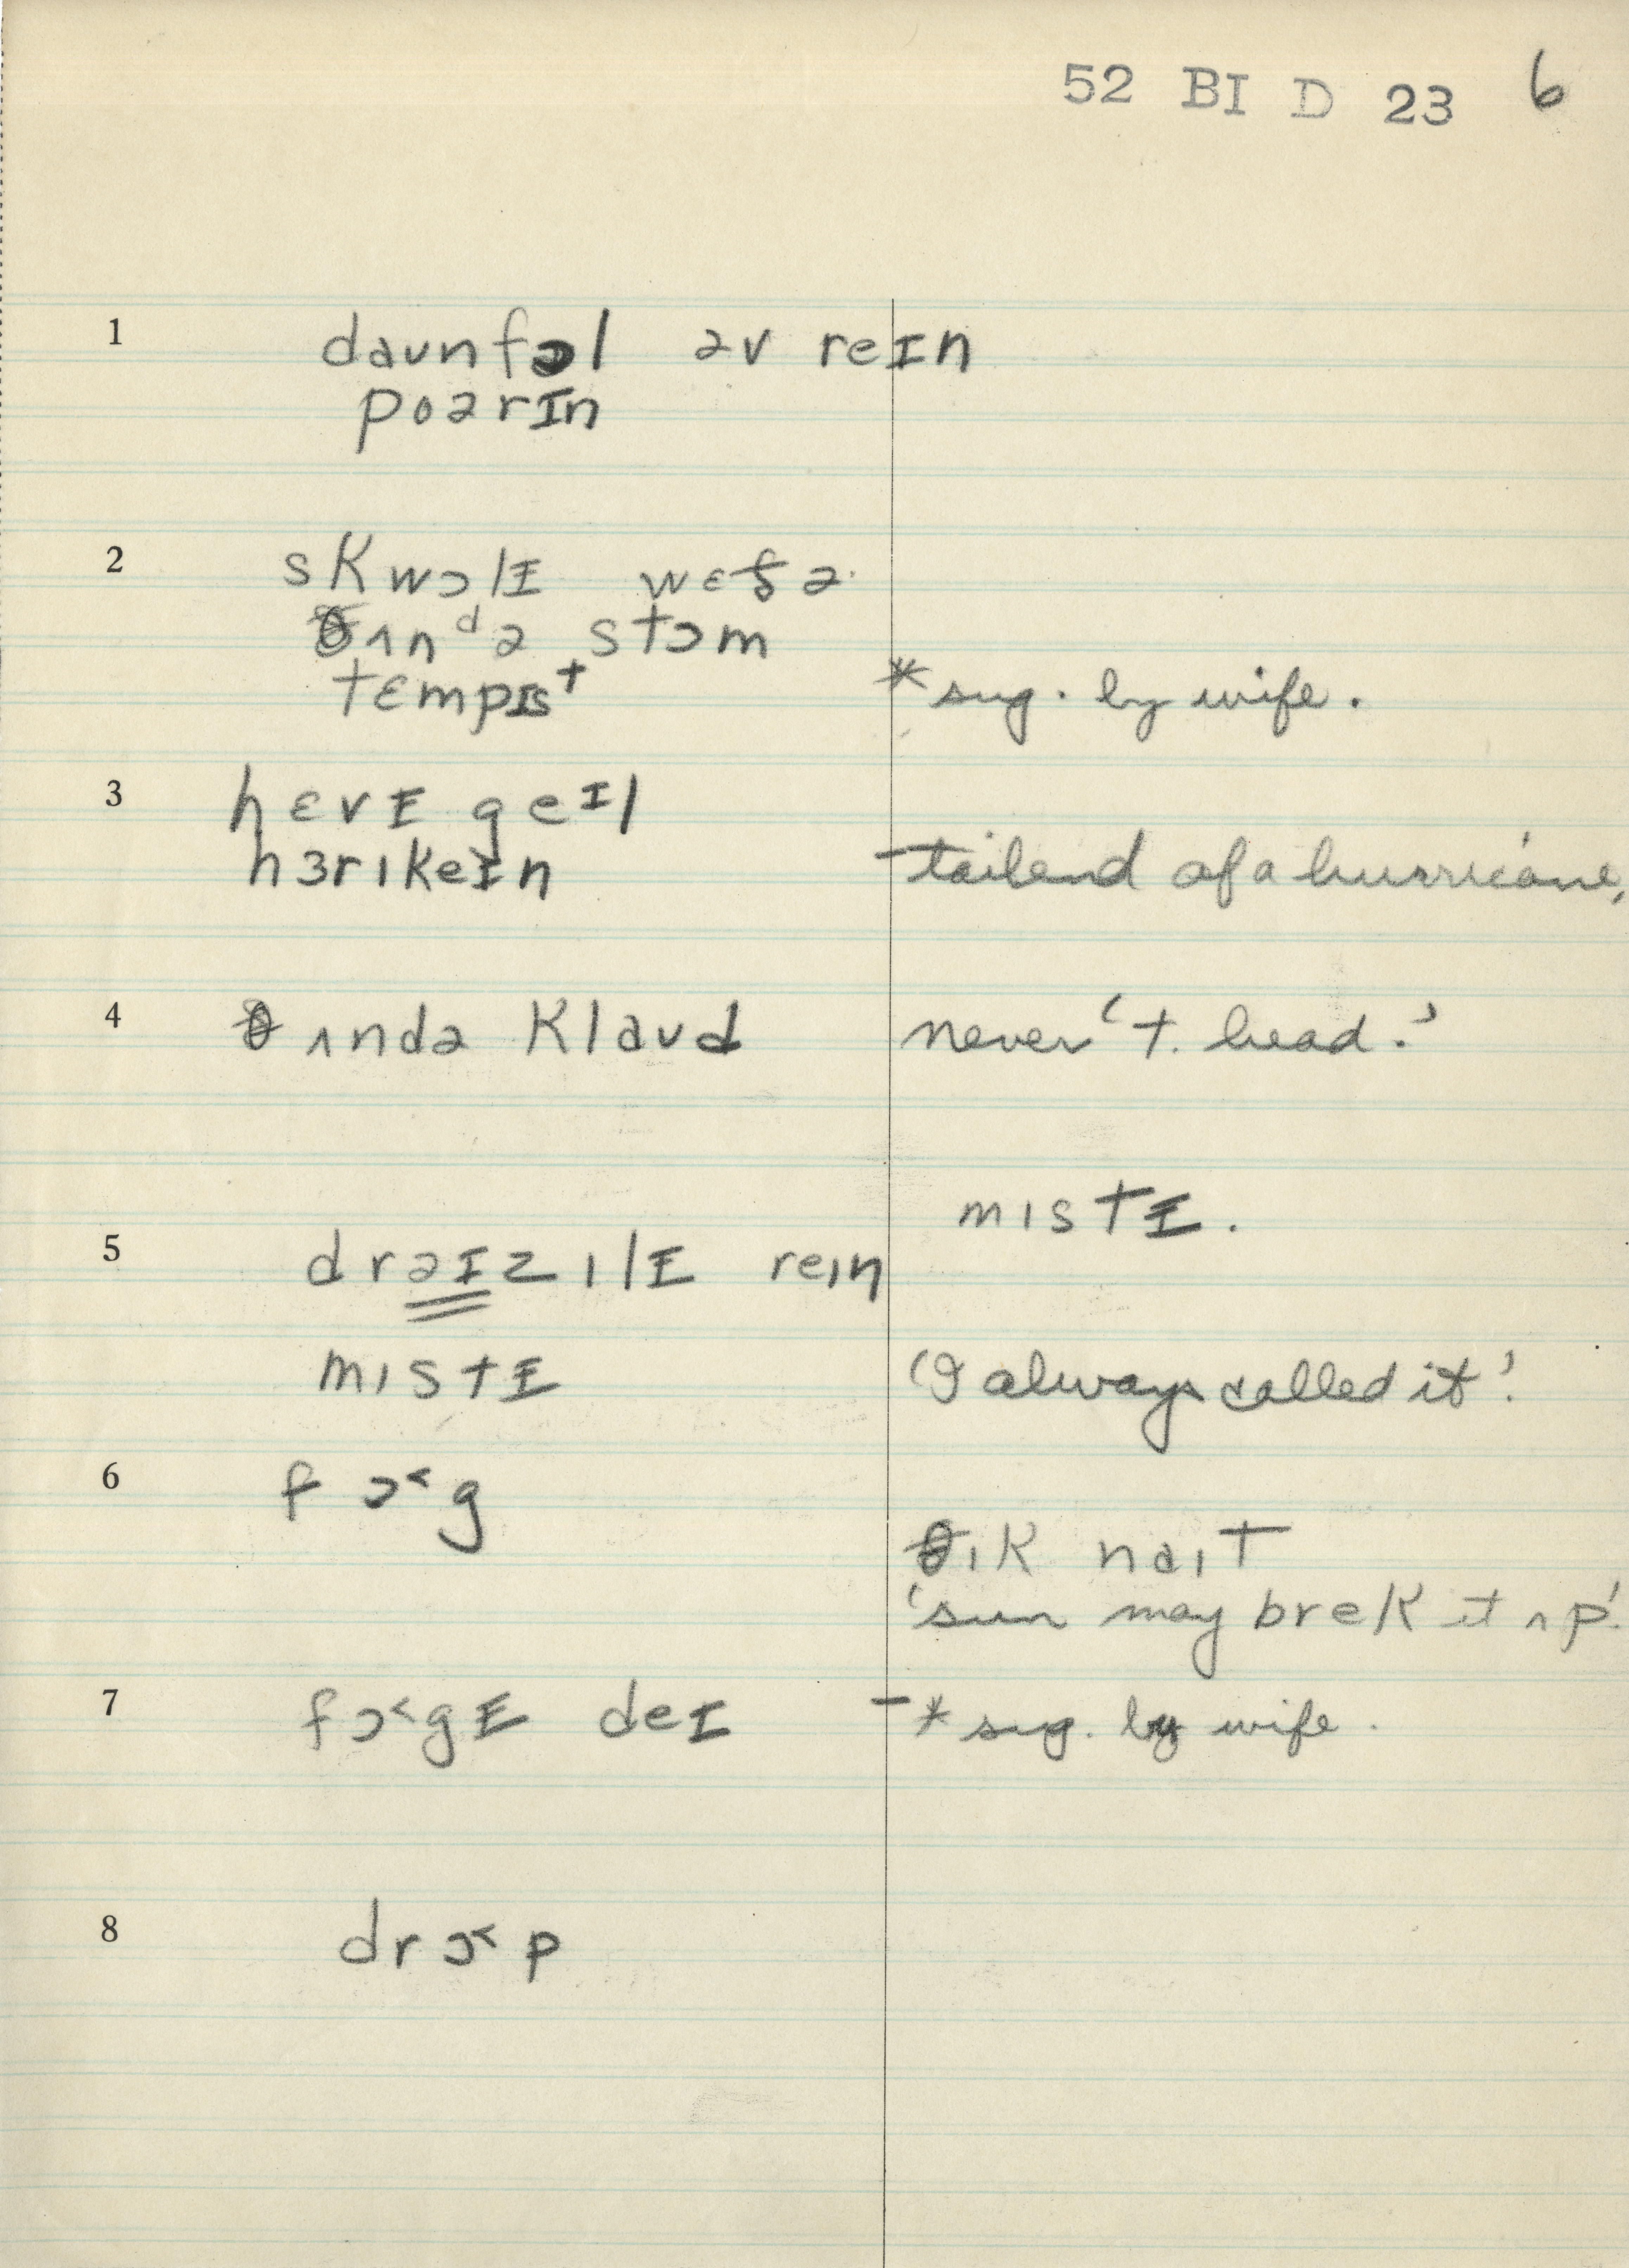 52 BI D 23 6
1 daʊnfɔl əv reɪn
poərɪn
2 skwɔlɪ wɛðə
θʌnᵈə stɔm
tɛmpɪst * sug. by wife.
3 hɛvɪ geɪl
hɜrɪkeɪn - tailend of a hurricane,
4 θʌndə klaʊd never 't. head.'
mɪstɪ.
5 drəɪzɪlɪ reɪn
mɪstɪ 'I always called it'.
6 fɔ˂g
θɪk naɪt
'sun may brek it ʌp'.
7 fɔ˂gɪ deɪ - * sug. by wife.
8 drɔ˂p